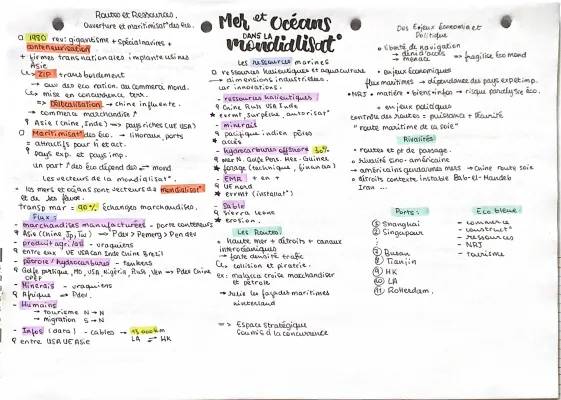 Routes et Ressources.
Ouverture et maritimisat° des Éco.
1980 rev: gigantisme + spécial navires +
conteneurisation
+ firmes transnationales implante usines
Asie
ZIP → transbordement
→ aux des eco ration au commerce mond.
→ mise en concurrence terr.
=> Littoralisation → chine influente.
→ commerce marchandise ↗
Asie (Chine, Inde) => pays riches (UE USA)
Maritimisat° des Éco. → littoraux, ports
= attractifs pour h et act.
pays exp. et pays imp.
un part° des éco dépend des ⇌ mond
Les vecteurs de la mondialisat°.
les mers et océans sont vecteurs de mondialisat°
et de ses flux.
transp mar = 90% échanges marchandises.
Flux :
- marchandises manufacturées - porte conteneurs
Asie (Chine, Jp, Tw) => Pdev > Pemerg > Pen dev
- produit agri. (al) - vraquiers
entre eux UE USA Can Inde Chine Bresil
- pétrole/hydrocarbures - tankers
Golfe persique, MO, USA, Nigeria, Rus, Ven => Pdev Chine
OPEP
- Minerais - vraquiers
Afrique => Pdev.
- Humains
→ tourisme N → N
→ migration S → N
- Infos (data) - cables → 13 000 km
entre USA UE Asie LA ⇌ HK
Mer et Océans
DANS LA
mondialisat°
Les ressources marines
ressources halieutiques et aquaculture
→ dimensions industrielles.
car innovations.
- ressources halieutiques :
Chine Rus USA Inde
exrmt, surpêche, autorisat°
- minerais
pacifique indien pôles
accès
- hydrocarbures offshore 30%
mer N. Golfe Pers. Mex - Guinee
forage (technique, finance)
- EMR + en +
UE nord
exrmt (installat°)
- Sable
Sierra leone
erosion.
Les Routes.
Haute mer + détroits + canaux
interocéaniques
→ forte densité trafic
collision et piraterie.
ex: malacca croise marchandiser
et pétrole
→ relie les façades maritimes
hinterland
=> Espace stratégique
Soumis à la concurrence
Des Enjeux économie et
Politique
liberté de navigation
→ déni d'accès
→ menace => fragilise éco mond
• enjeux économiques
flux maritimes → dépendance des pays expt imp.
NRJ + matière + biens + info → risque paralysie éco.
• enjeux politiques
contrôle des routes = puissance + sécurité
"route maritime de la soie"
Rivalités
routes et pt de passage.
rivalité sino-américaine
américains gendarmes mers → chine route soie
détroits contexte instable Bab-el-Mandeb
Iran ...
Ports :
① Shanghai
② Singapour
⑦ Busan
⑧ Tianjin
⑨ HK
⑩ LA
⑪ Rotterdam.
Eco bleue:
- commerce
- construct°
- ressources
- NRJ
- tourisme